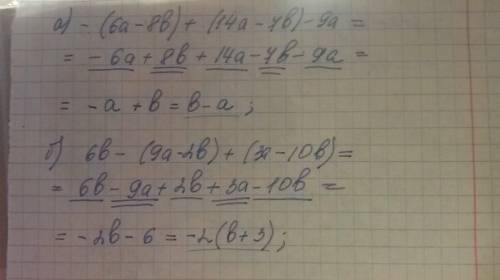 а) -(6a-8в)+(14a-7в)-9a=
= -6a+8в+14a-7в-9a=
= -a+в=в-a;
б) 6в-(9a-2в)+(3a-10в)=
= 6в-9a+2в+3a-10в=
= -2в-6=-2(в+3);